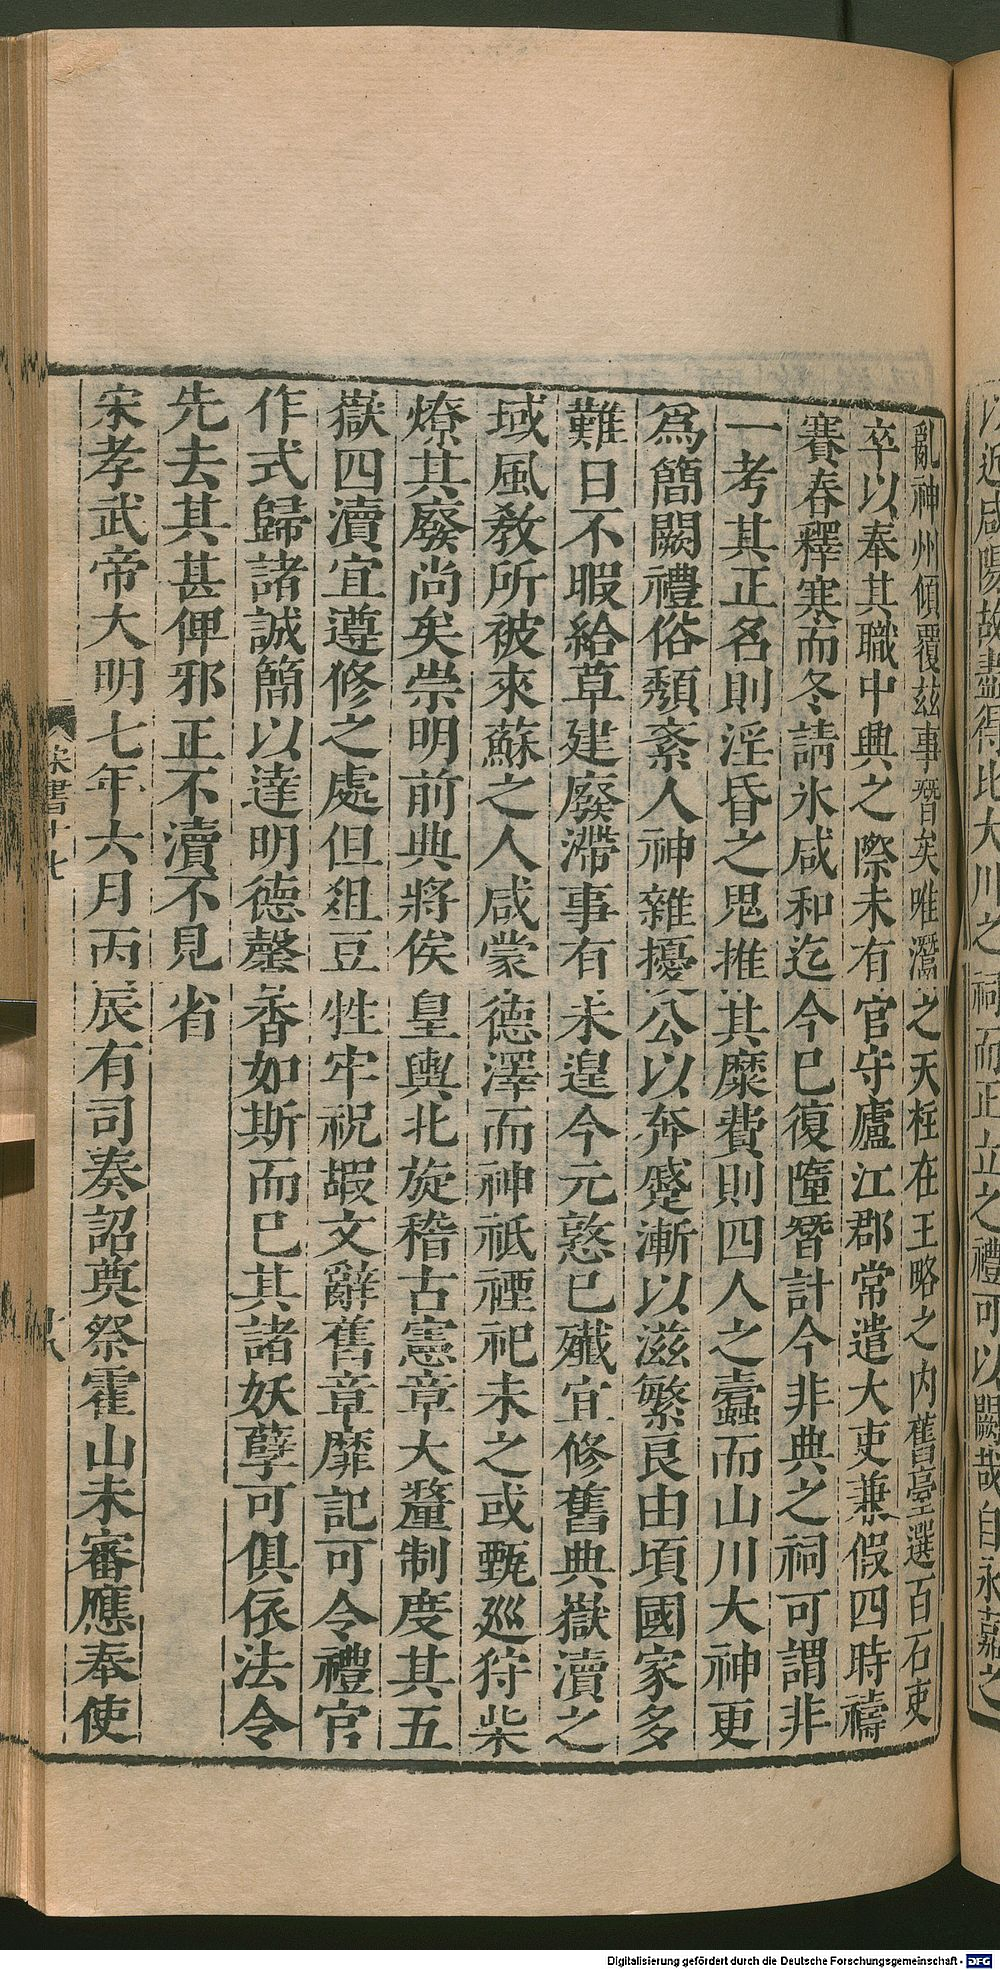 以近咸陽故盡得比大川之祠而正立之禮可以闕哉自永嘉之
亂神州傾覆兹事替矣唯灊之天柱在王略之内舊臺選百石吏
卒以奉其職中興之際未有官守廬江郡常遣大吏兼假四時禱
賽春釋寒而冬請氷咸和迄今已復隳替計今非典之祠可謂非
一考其正名則淫昏之鬼推其糜費則四人之蠹而山川大神更
爲簡闕禮俗頽紊人神雜擾公以奔蹙漸以滋繁良由頃國家多
難日不暇給草建廢滯事有未遑今元憝已殲宜修舊典嶽瀆之
域風敎所被來蘇之人咸蒙德澤而神祇禋祀未之或甄巡狩柴
燎其廢尚矣崇明前典將俟皇輿北旋稽古憲章大釐制度其五
嶽四瀆宜遵修之處但俎豆牲牢祝嘏文辭舊章靡記可令禮官
作式歸諸誠簡以達明德馨香如斯而已其諸妖孽可俱依法令
先去其甚俾邪正不瀆不見省
宋孝武帝大明七年六月丙辰有司奏詔奠祭霍山未審應奉使
宋書十七
十八
Digitalisierung gefördert durch die Deutsche Forschungsgemeinschaft - DFG